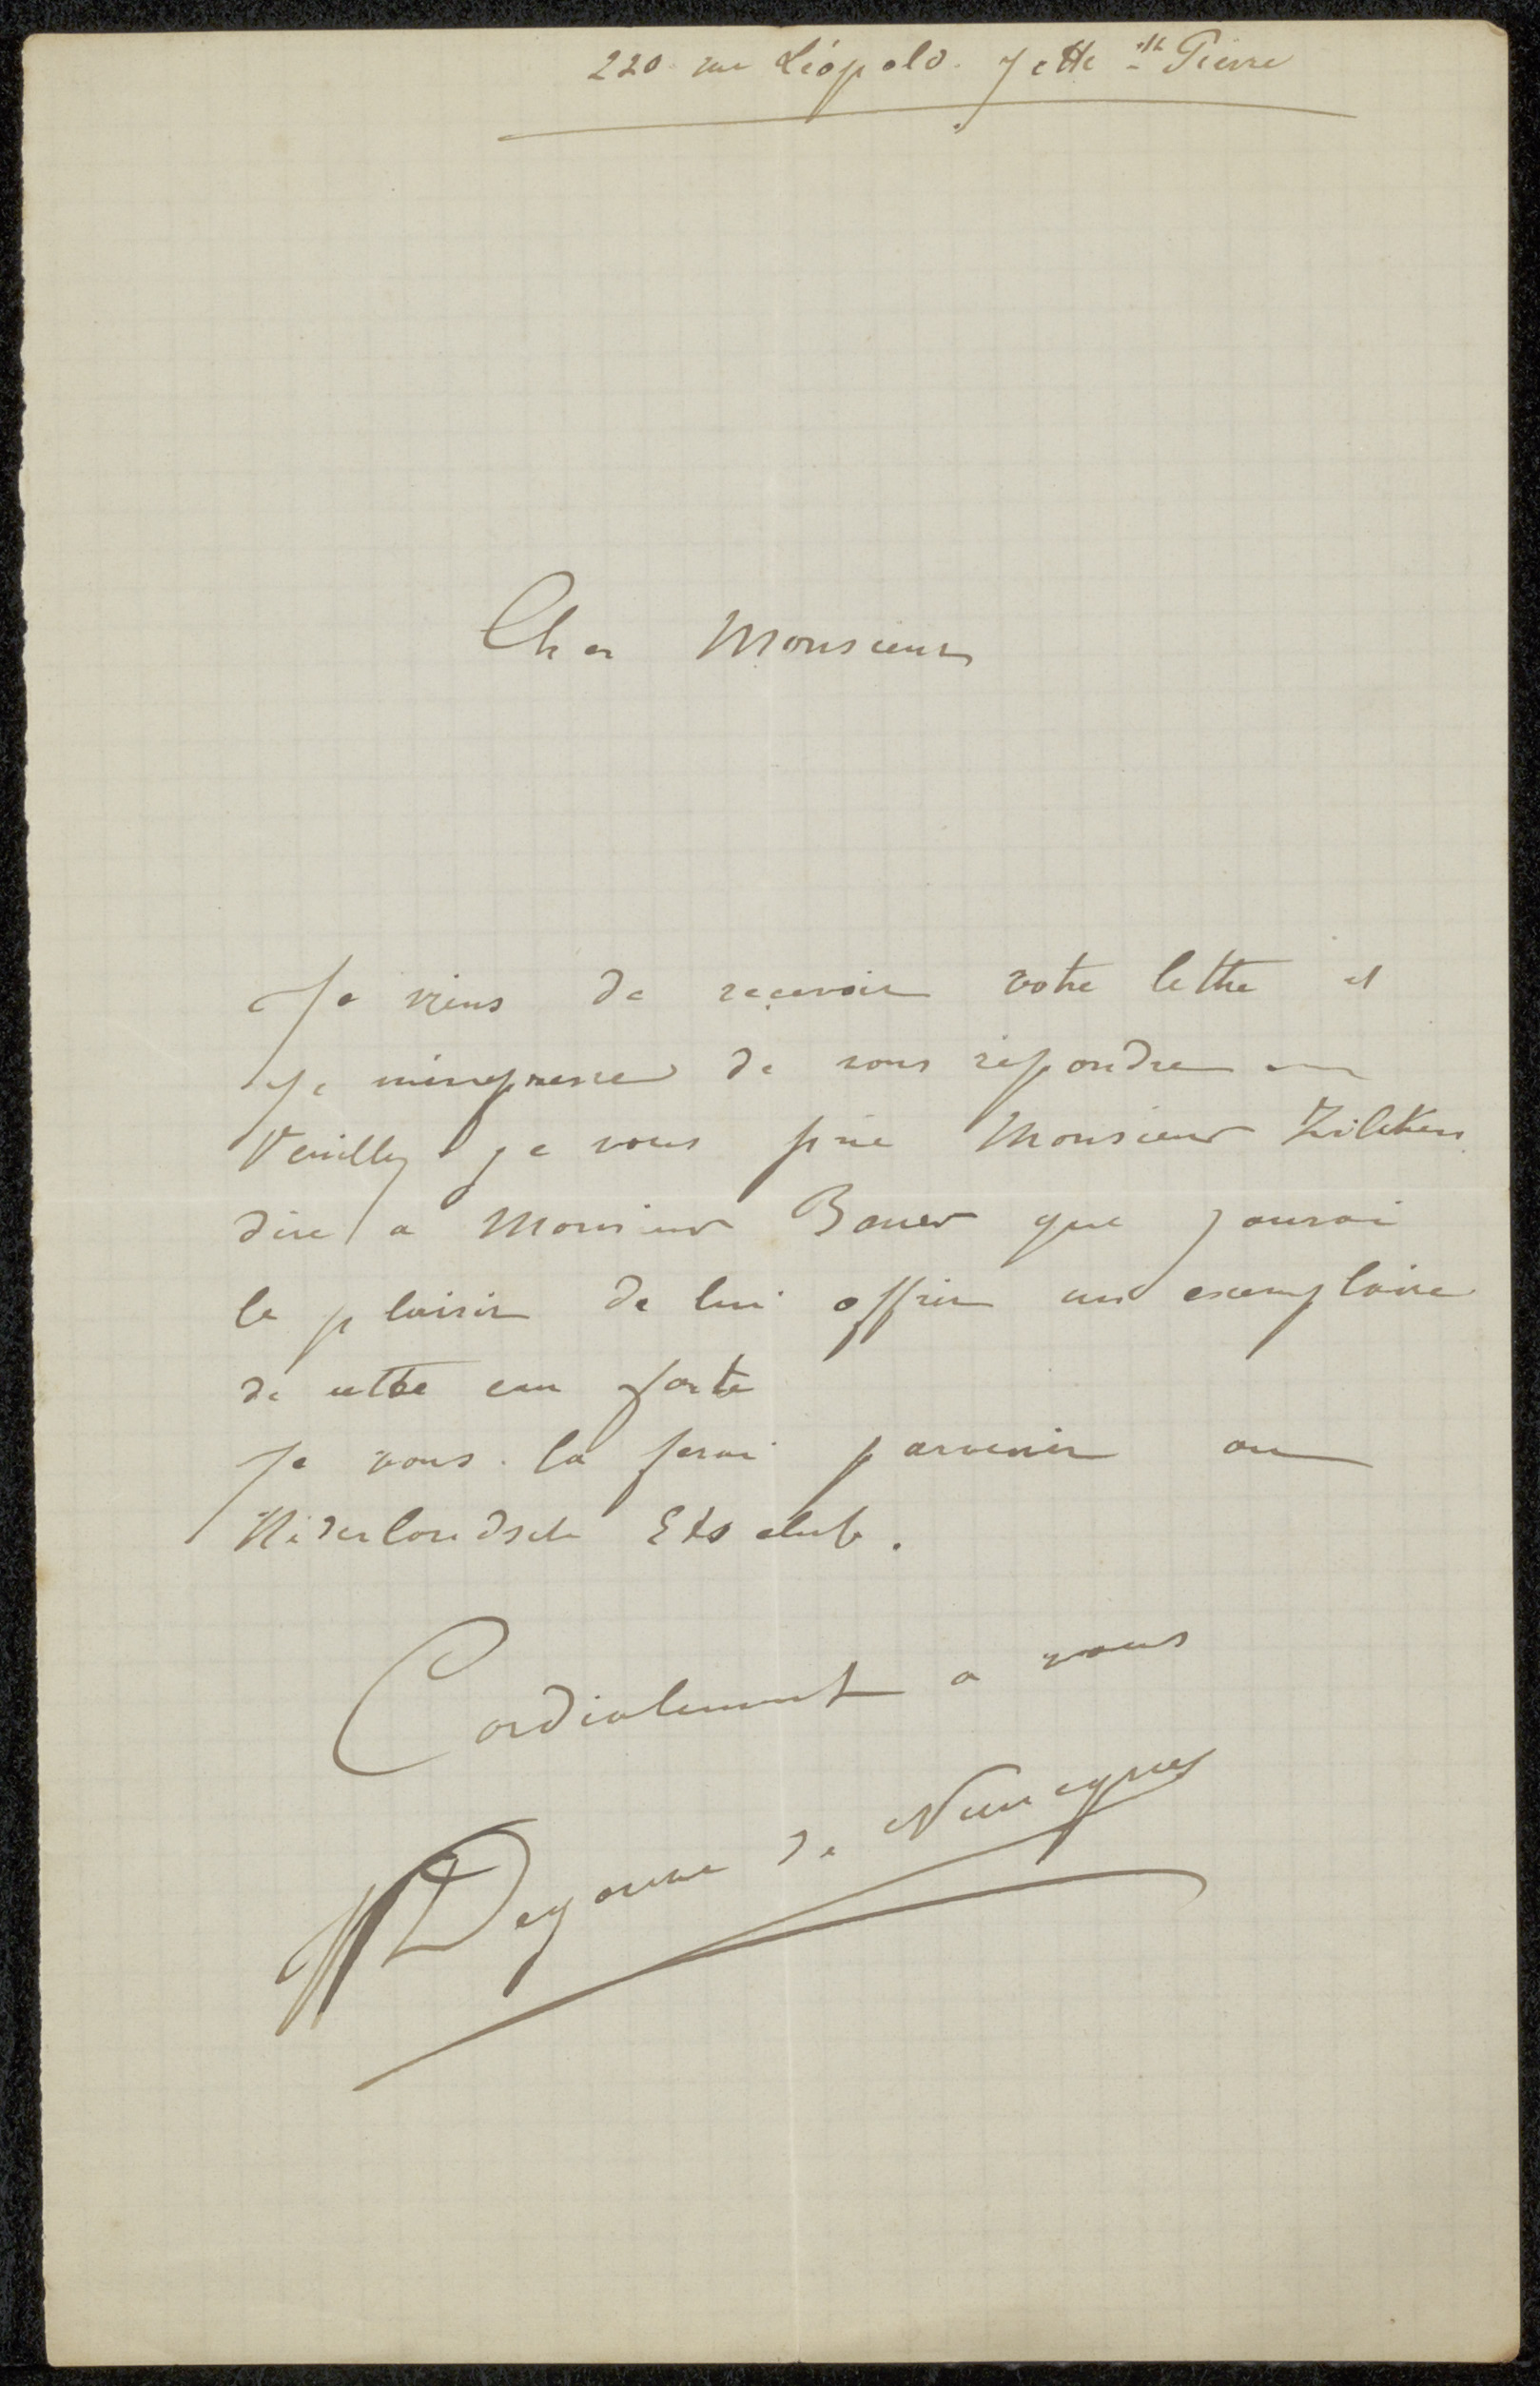 220 rue Léopold. Jette Ste Pierre
Cher Monsieur
Je viens de recevoir votre lettre et
je m'empresse de vous répondre
Veuillez je vous prie Monsieur Zilcken
dire a Monsieur Bauer que j'aurai
le plaisir de lui offrir un exemplaire
de cette eau forte
Je vous la ferai parvenir au
Niderlandsch Etsclub.
Cordialement a vous
W Degouve de Nuncques